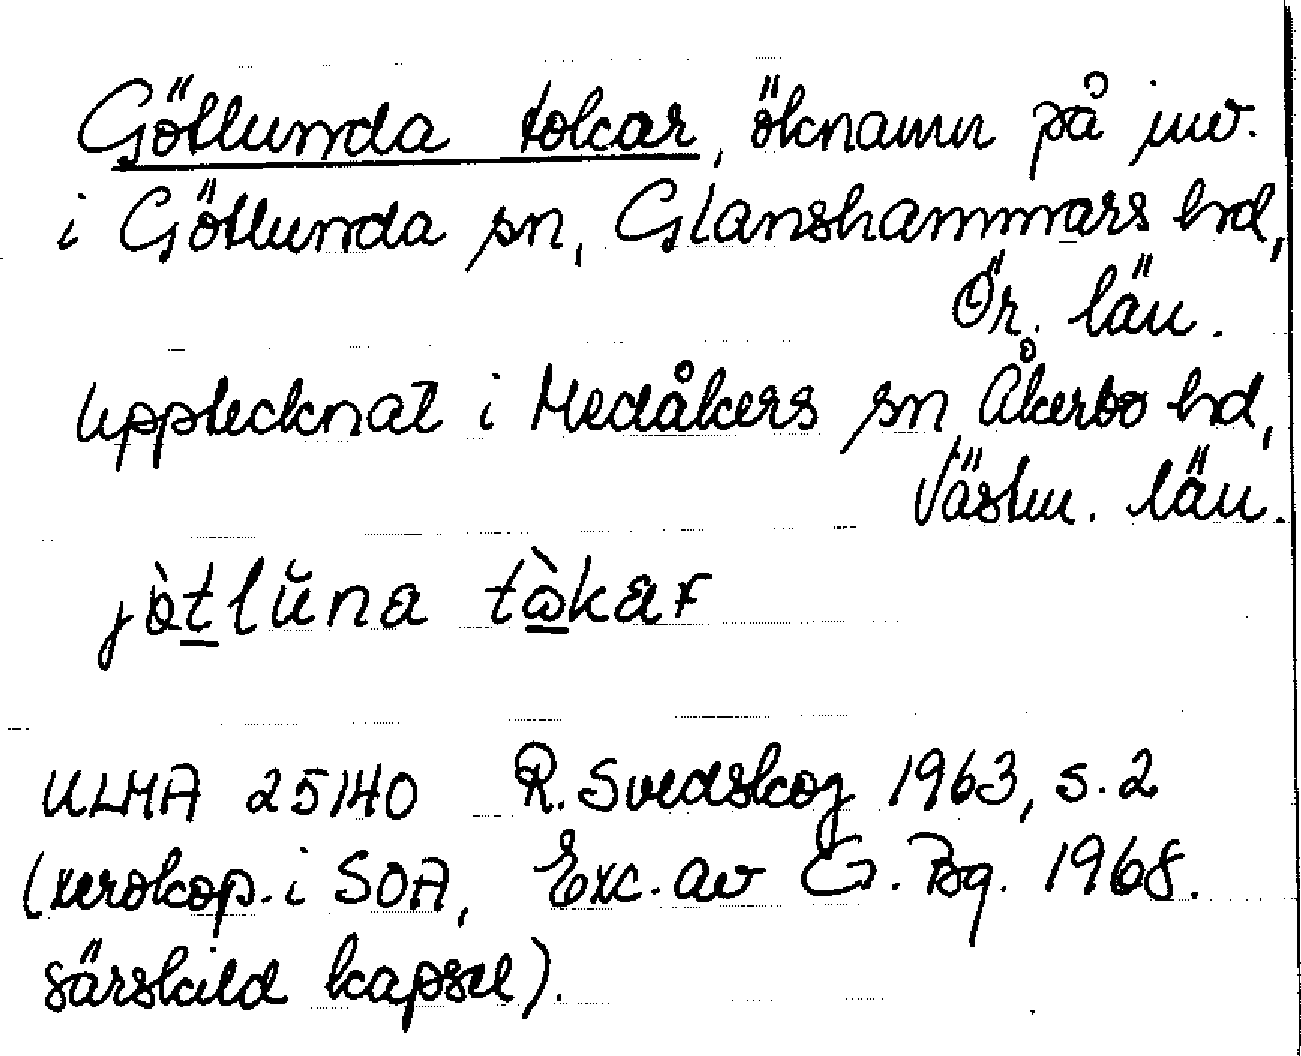 Götlunda tokar, öknamn på inv.
i Götlunda sn, Glanshammars hd,
Ör. län.
Upptecknat i Medåkers sn, Åkerbo hd,
Västm. län.
ULMA 25140 R. Svedskog 1963, s. 2
(xerokop. i SOA, Exc. av G. Bg. 1968.
särskild kapsel).